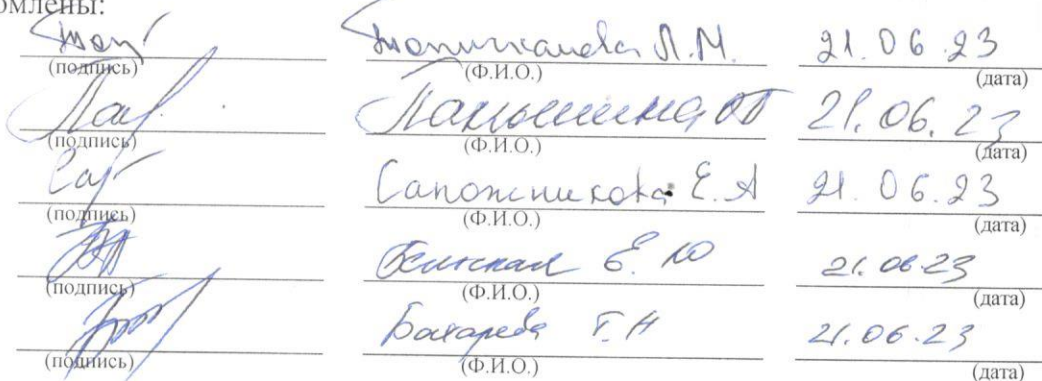 омлены:
Л.М. 21.06.23
(подпись) (Ф.И.О.) (дата)
21.06.23
(подпись) (Ф.И.О.) (дата)
Сапожникова Е.А 21.06.23
(подпись) (Ф.И.О.) (дата)
Е.Ю 21.06.23
(подпись) (Ф.И.О.) (дата)
Бахарева Т.Н 21.06.23
(подпись) (Ф.И.О.) (дата)